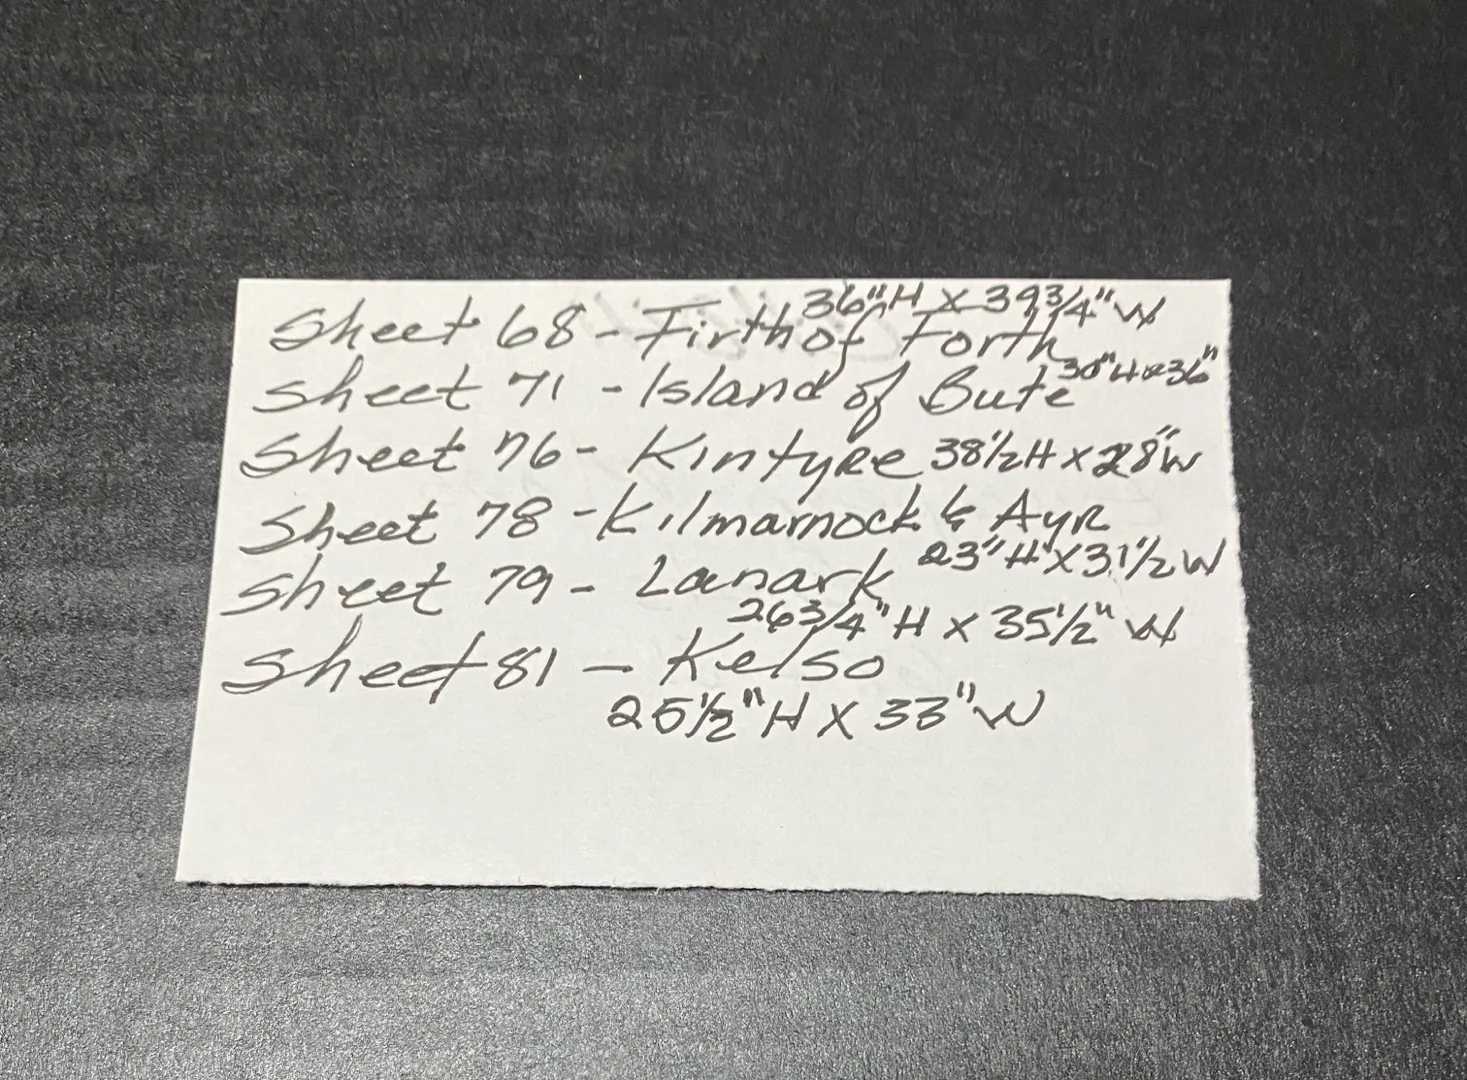 36"H X 39 3/4" W
Sheet 68 - Firth of Forth
Sheet 71 - Island of Bute 30"H x 36"
Sheet 76 - Kintyre 38 1/2 H X 28" W
Sheet 78 - Kilmarnock & Ayr
23" H X 31 1/2 W
Sheet 79 - Lanark
26 3/4" H X 35 1/2" W
Sheet 81 - Kelso
25 1/2" H X 33" W